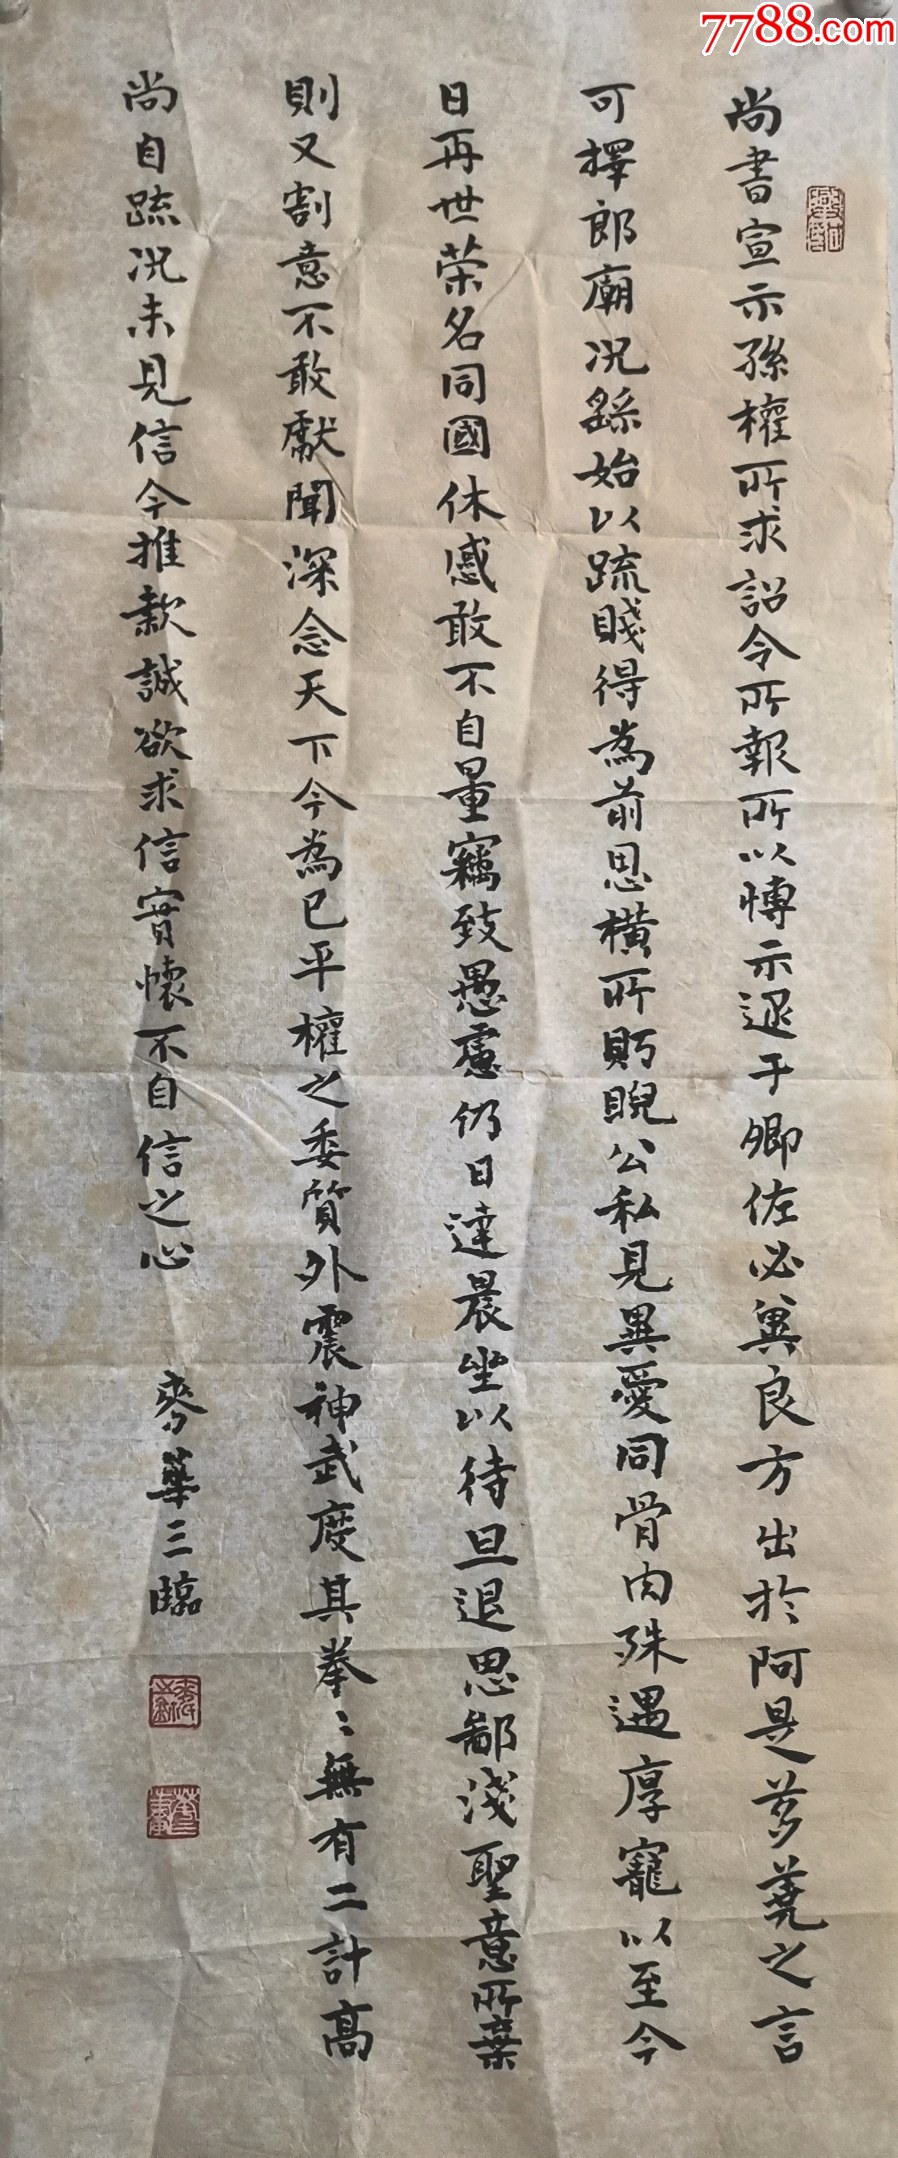 7788.com
尚書宣示孫權所求詔令所報所以博示逮于卿佐必冀良方出於阿是芻蕘之言
可擇郎廟況繇始以疏賤得為前恩橫所眄睨公私見異愛同骨肉殊遇厚寵以至今
日再世荣名同國休慼敢不自量竊致愚慮仍日達晨坐以待旦退思鄙淺聖意所棄
則又割意不敢獻聞深念天下今為已平權之委質外震神武度其拳〻無有二計高
尚自疏況未見信今推款誠欲求信實懷不自信之心 麥華三臨